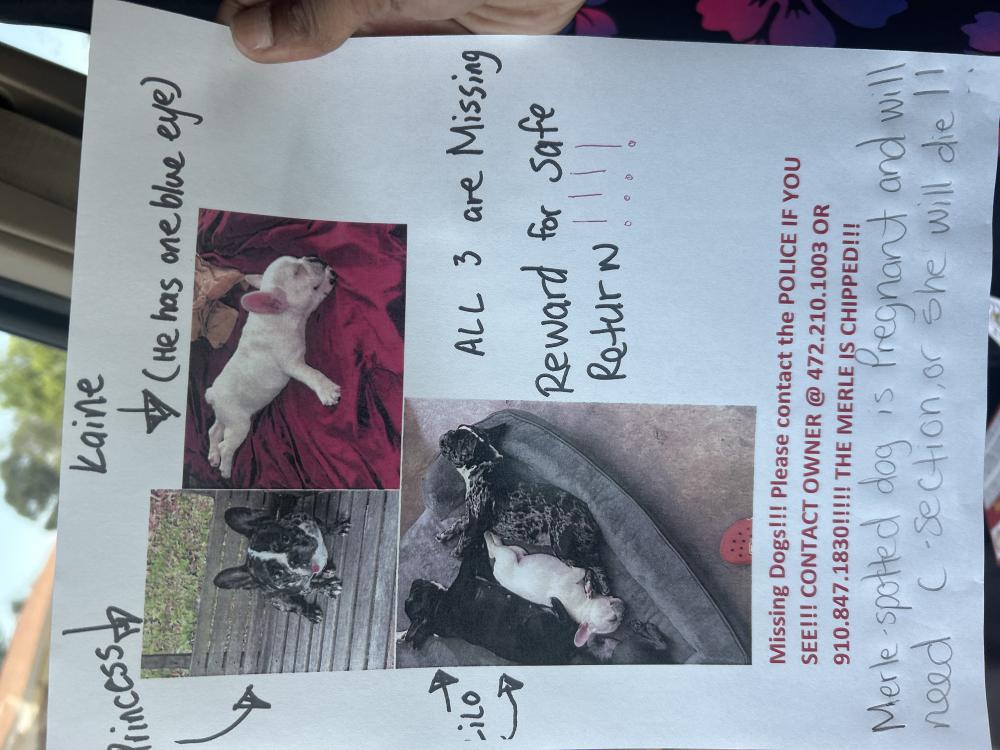 Princess
Kaine
(He has one blue eye)
ALL 3 are Missing
Reward for Safe
Return !!!!
Missing Dogs!!! Please contact the POLICE IF YOU
SEE!!! CONTACT OWNER @ 472.210.1003 OR
910.847.1830!!!!! THE MERLE IS CHIPPED!!!
Merle-spotted dog is Pregnant and will
need C-section, or She will die !!